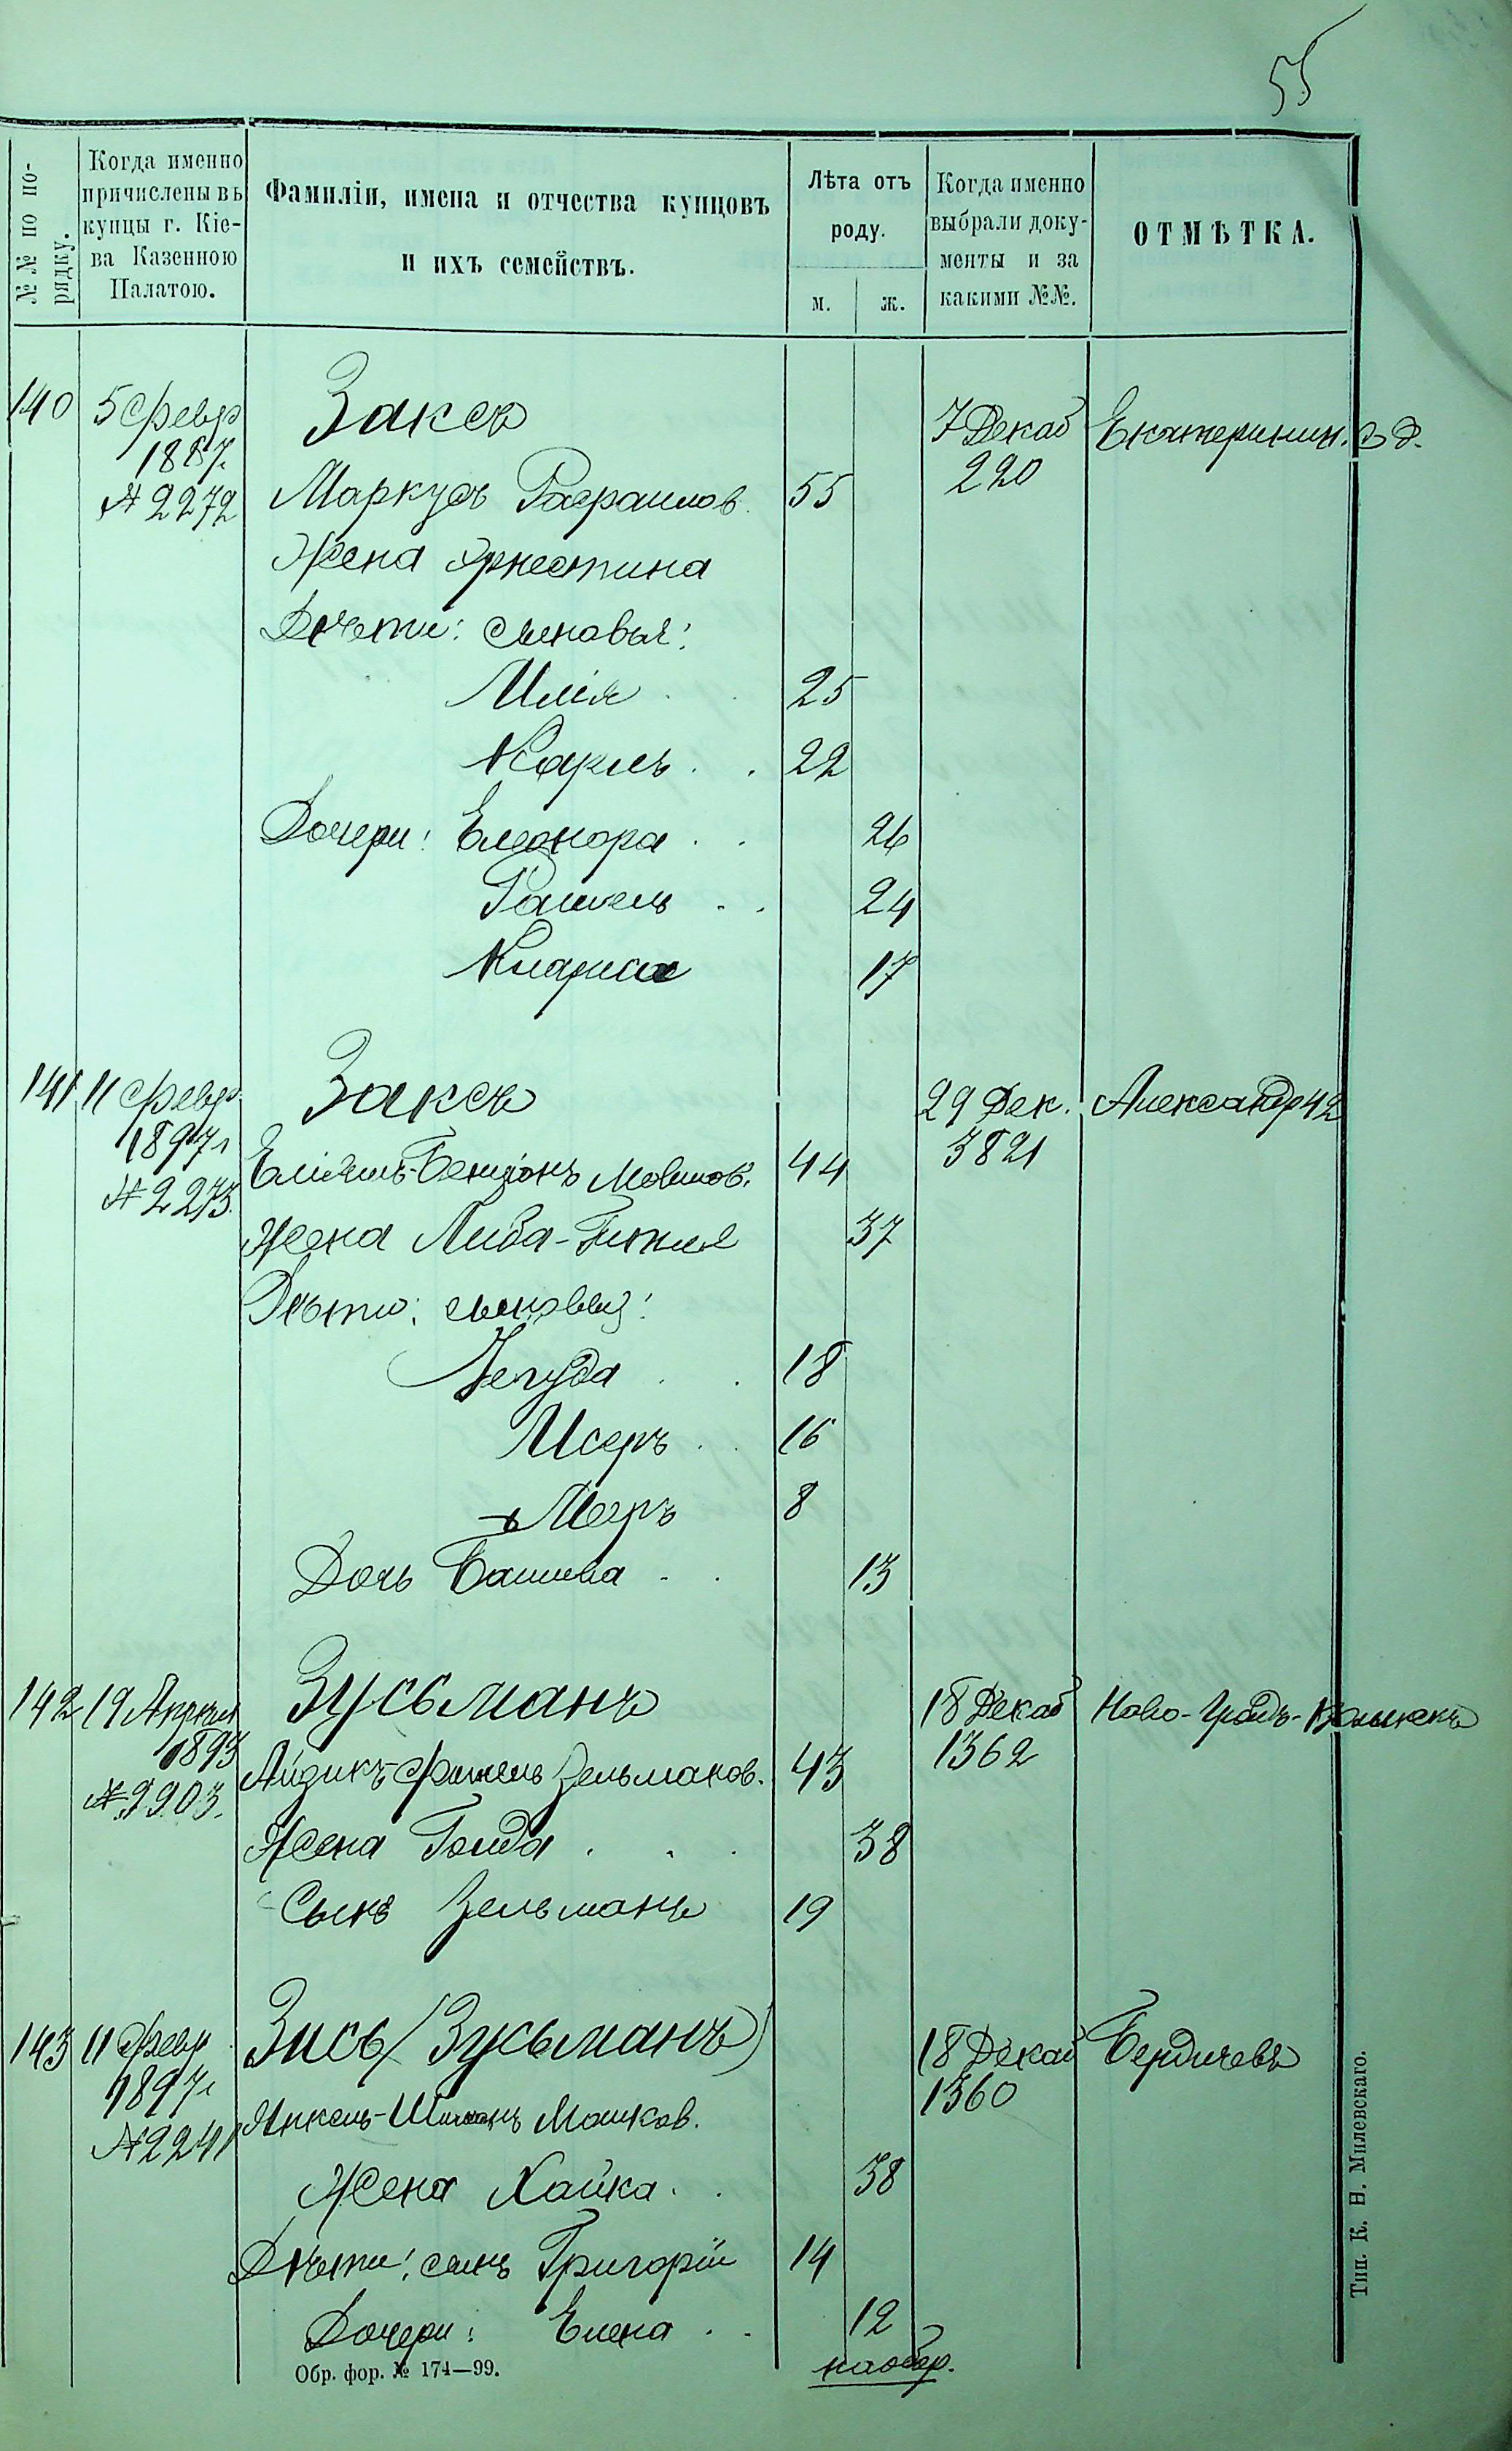 55
№№ по порядку.
Когда именно причислены въ купцы г. Кіева Казенною Палатою.
Фамиліи, имена и отчества купцовъ и ихъ семействъ.
Лѣта отъ роду.
м. ж.
Когда именно выбрали документы и за какими №№.
ОТМѢТКА.
140 5 февр Заксъ 7 Декаб Екатеринин. 
1887. 220
№ 2272 Маркусъ Рафаилов. 55
Жена Эрнестина
Дѣти: сыновья:
Илія 25
Карлъ 22
Дочери: Елеонора 26
Рашель 24
Клариса 17
141 11 февр. Заксъ 29 Дек. Александр 42
1897 г 3821
№ 2273. Бенціонъ Мовшов. 44
Жена Либа-Гитля 37
Дѣти: сыновья:
Іегуда 18
Исеръ 16
Мееръ 8
Дочь Башева 13
142 19 Апрѣля Зусьманъ 18 Декаб Ново-Градъ-Волынскъ
1893 1362
№ 9903. Айзикъ-Фишель Зельманов. 43
Жена Голда 38
Сынъ Зельманъ 19
143 11 февр Зись (Зусьманъ) 18 Декаб Бердичевъ
1897 г 1360
№ 2241 Янкель-Шимонъ Мошков.
Жена Хайка 38
Дѣти: сынъ Григорій 14
Дочери: Елена 12
на обор.
Обр. фор. № 174—99.
Тип. К. Н. Милевскаго.